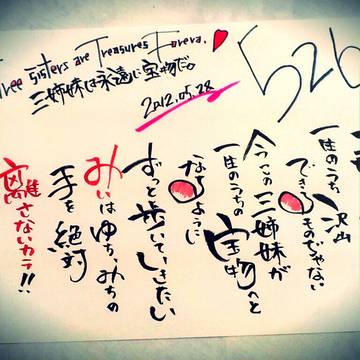 Three Sisters are Treasures Forever.
三姉妹は永遠に宝物だ。
2012.05.28
526
一生のうち沢山
できるものじゃない
今この三姉妹が
一生のうちの宝物へと
なるように
ずっと歩いていきたい
みぃはゆち、みちの
手を絶対
離さないカラ!!